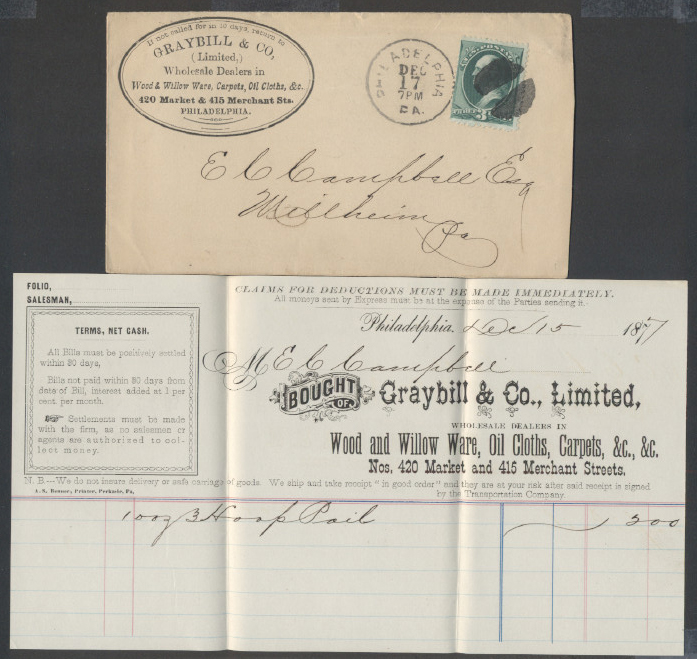 If not called for in 10 days, return to
GRAYBILL & CO,
(Limited,)
Wholesale Dealers in
Wood & Willow Ware, Carpets, Oil Cloths, &c.
420 Market & 415 Merchant Sts.
PHILADELPHIA.
PHILADELPHIA
DEC
17
7PM
PA.
E C Campbell Esq
Millheim
Pa
FOLIO,
SALESMAN,
CLAIMS FOR DEDUCTIONS MUST BE MADE IMMEDIATELY.
All moneys sent by Express must be at the expense of the Parties sending it.
Philadelphia, Dec 15 1877
M E C Campbell
TERMS, NET CASH.
All Bills must be positively settled
within 30 days,
Bills not paid within 30 days from
date of Bill, interest added at 1 per
cent. per month.
Settlements must be made
with the firm, as no salesmen or
agents are authorized to col-
lect money.
BOUGHT OF Graybill & Co., Limited,
WHOLESALE DEALERS IN
Wood and Willow Ware, Oil Cloths, Carpets, &c., &c.
Nos. 420 Market and 415 Merchant Streets.
N. B.—We do not insure delivery or safe carriage of goods. We ship and take receipt "in good order" and they are at your risk after said receipt is signed
by the Transportation Company.
A. S. Benner, Printer, Perkasie, Pa,
3 Hoop Pail 200